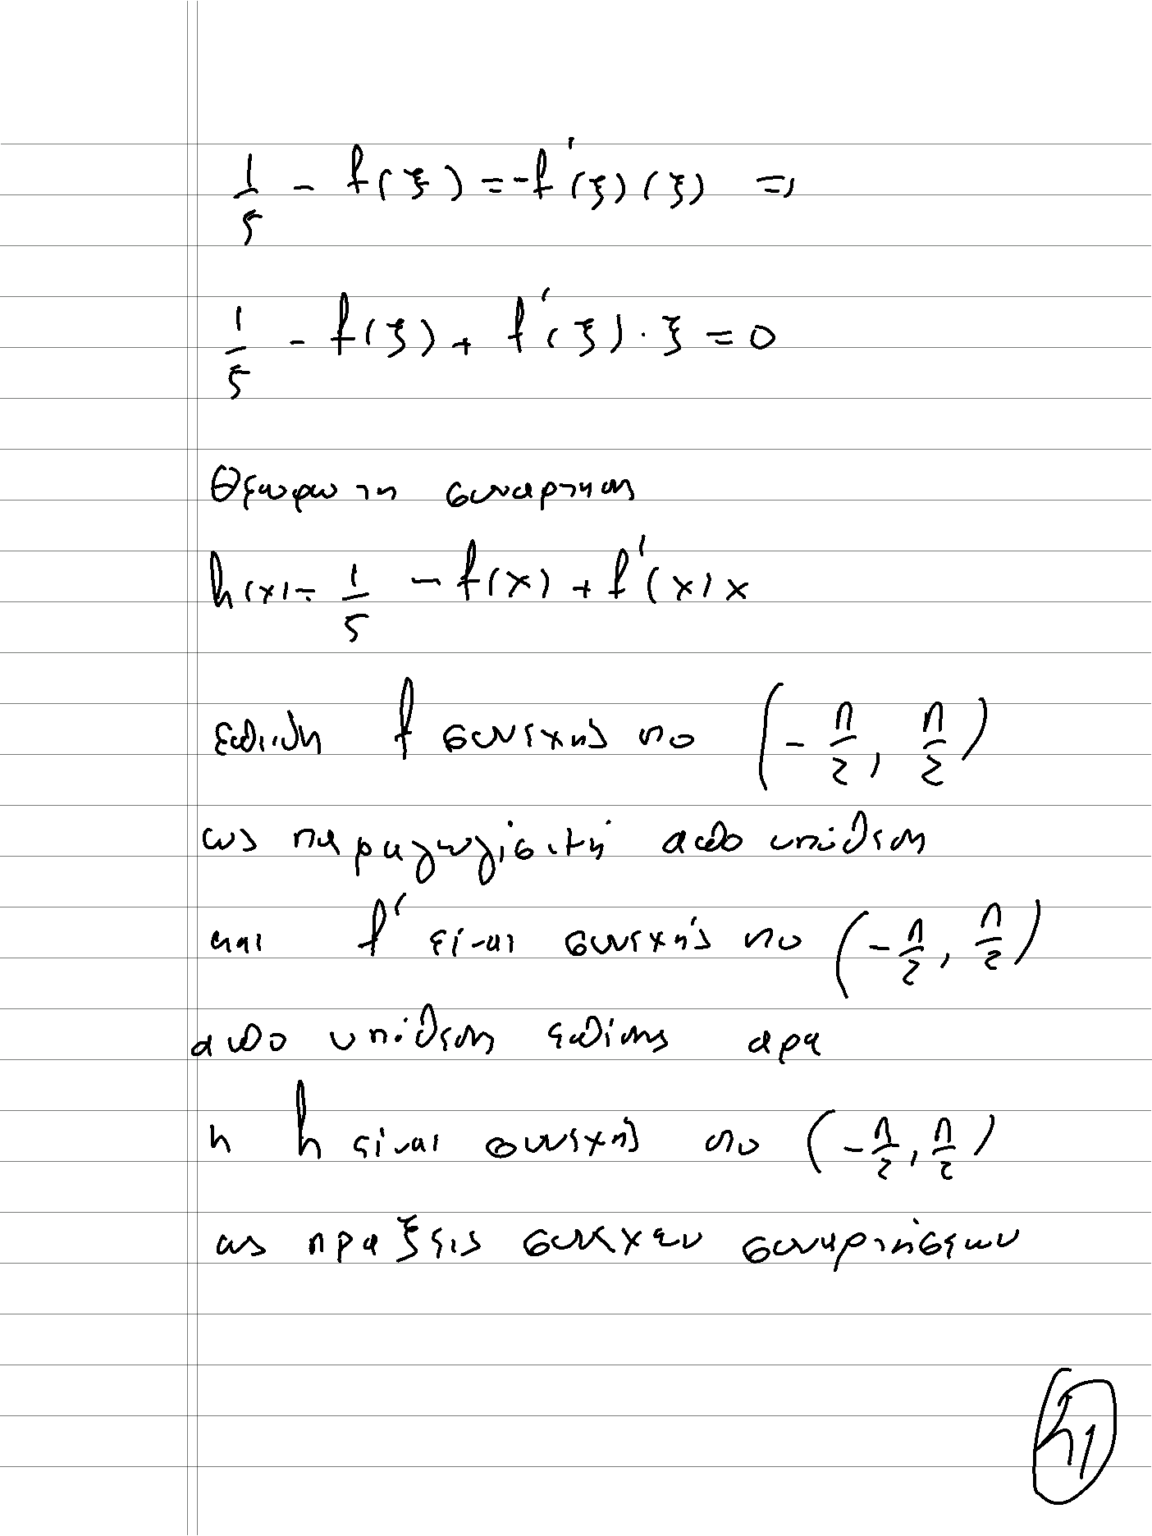 1/5 - f(ξ) = -f'(ξ)(ξ) =>
1/5 - f(ξ) + f'(ξ)·ξ = 0
Θεωρω τη συναρτηση
h(x) = 1/5 - f(x) + f'(x)x
επειδη f συνεχης στο (-π/2, π/2)
ως παραγωγίσιμη απο υπόθεση
και f' είναι συνεχής στο (-π/2, π/2)
απο υπόθεση επίσης αρα
η h είναι συνεχή στο (-π/2, π/2)
ως πραξεις συνεχων συναρτήσεων